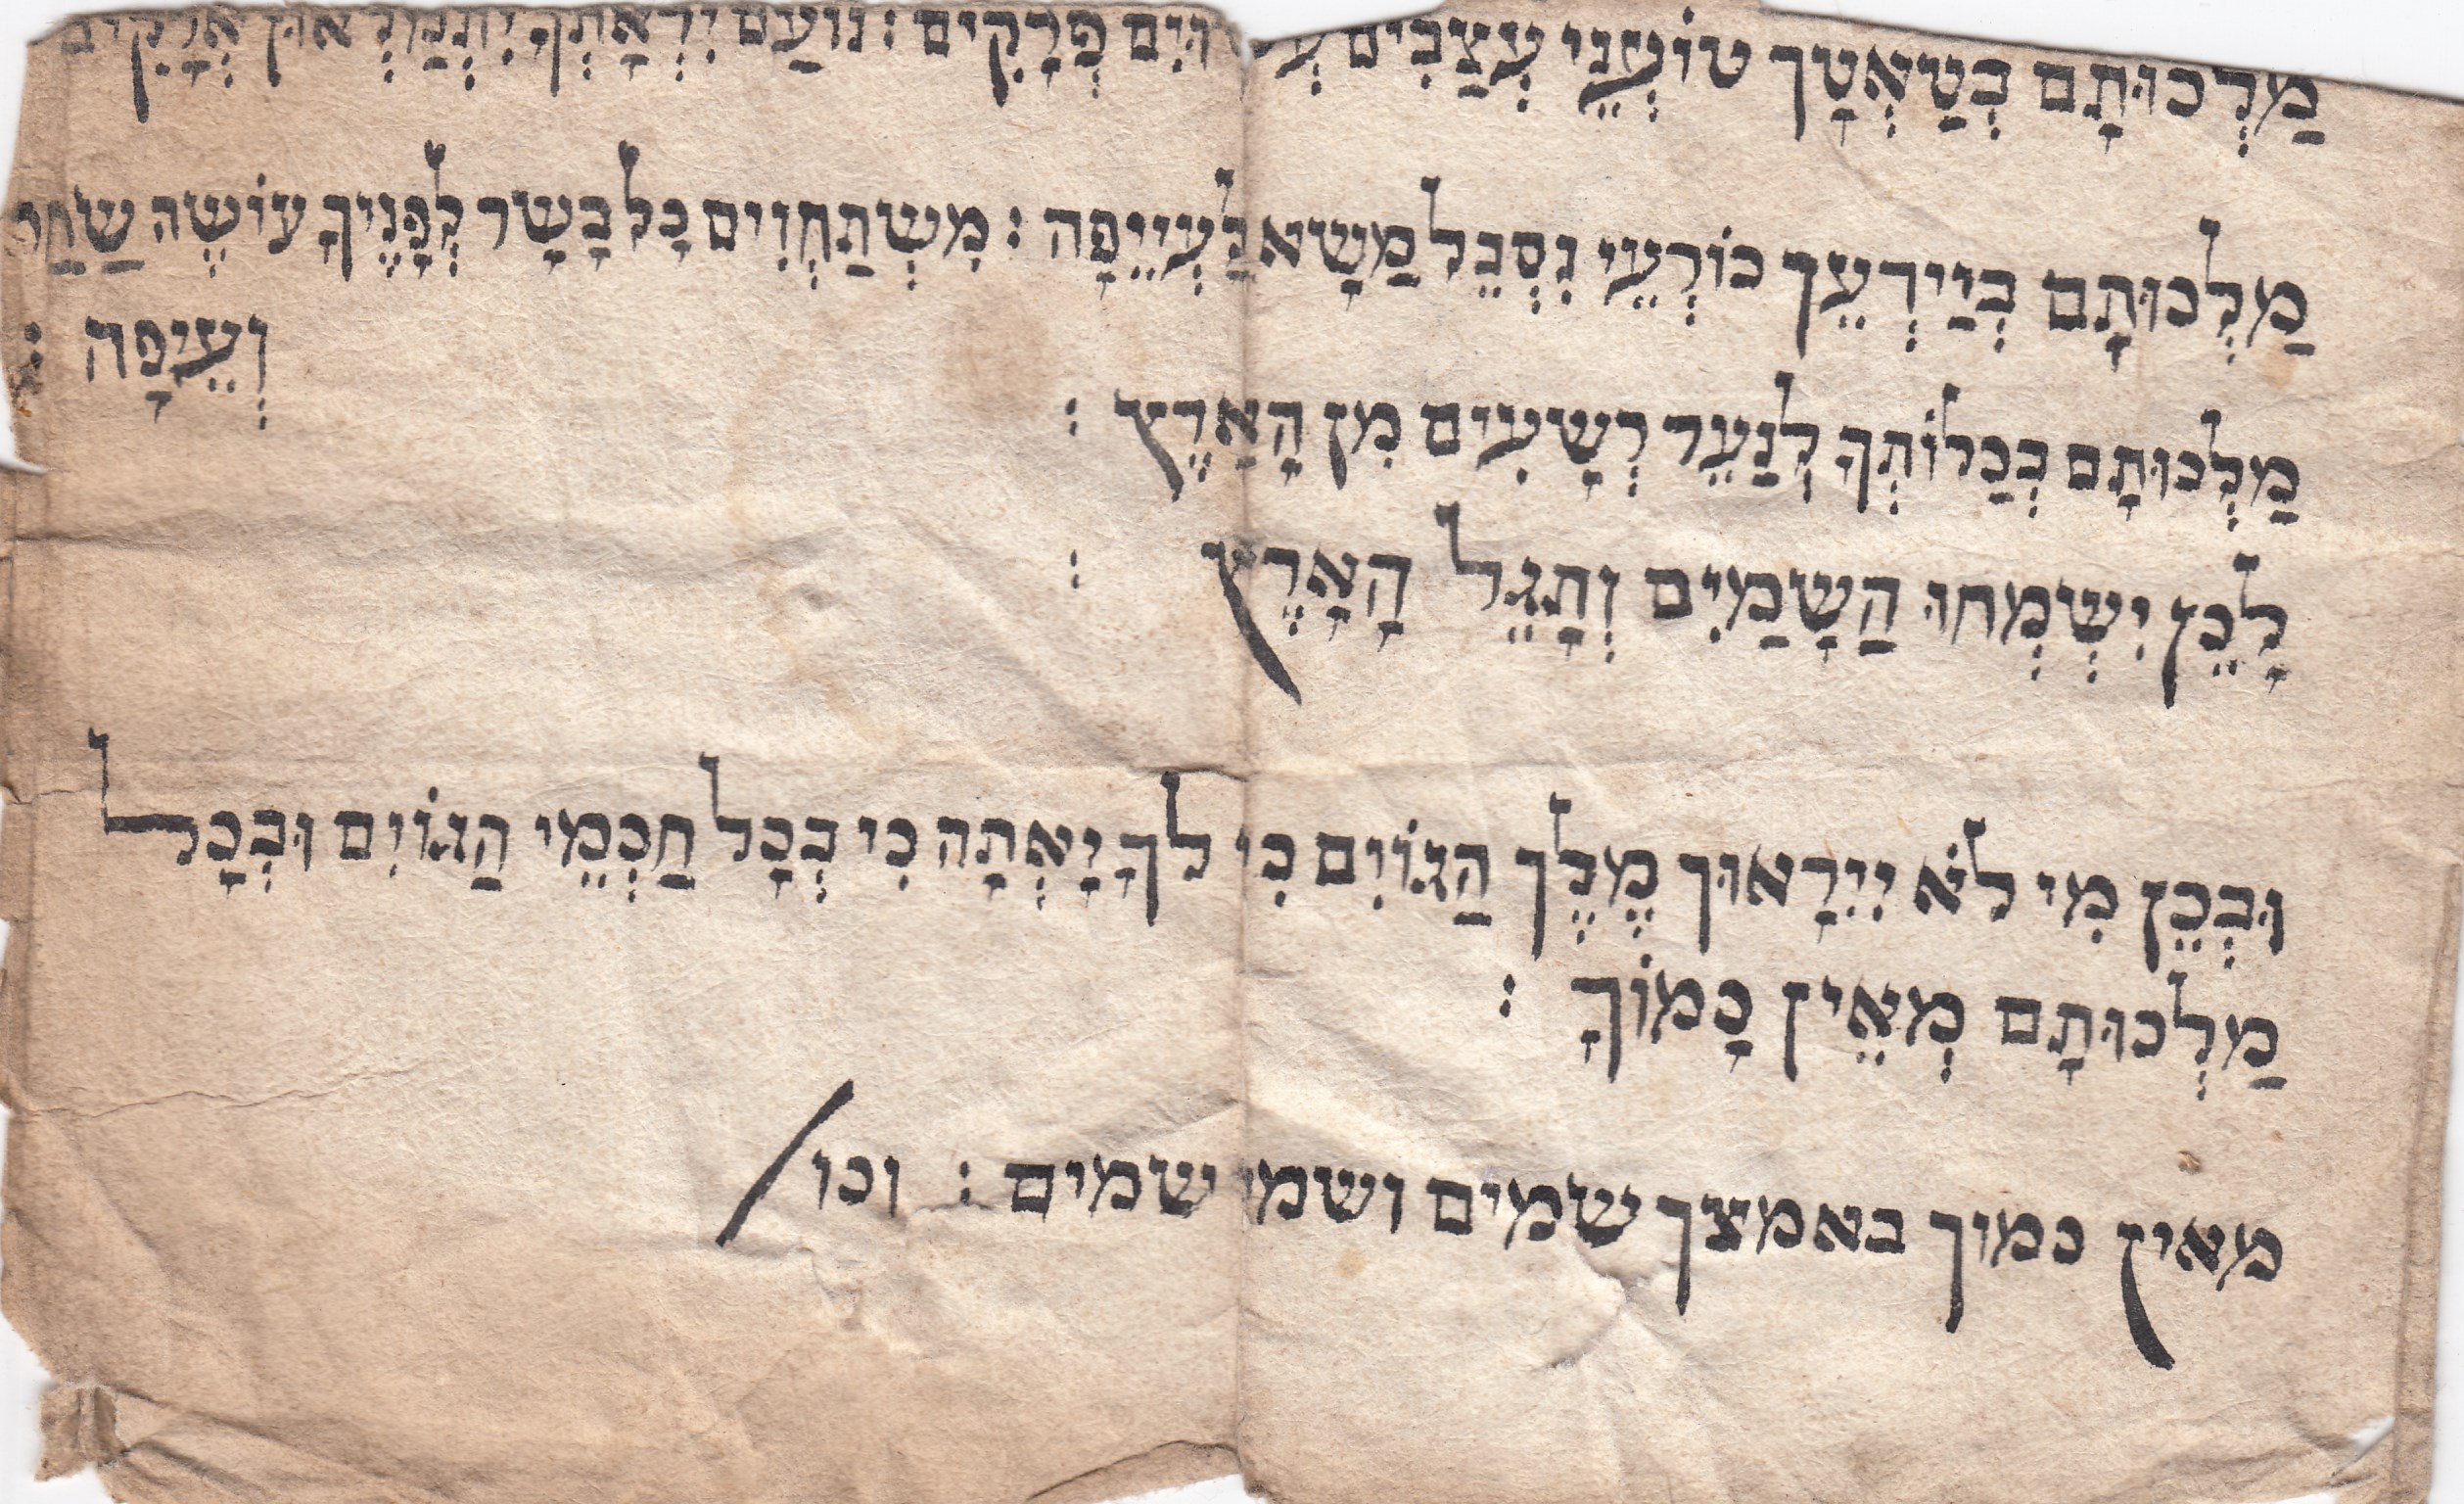 מַלְכוּתָם בְּטַאְטָך טוֹעְנֵי עְצַבִּים פְּרָקִים : נוֹעַם יִרְאָתְךָ
מַלְכוּתָם בְּיַיְרְעֵך כּוֹרְעֵי נִסְבֵּל מַשָא לַעְיֵיפָה : מִשְתַחְוִים כָּל בָּשָר לְפָנֶיךָ עוֹשֶה שַׁחַר
וְעֵיפָה :
מַלְכוּתָם כְּכַלוֹתְךָ לְנַעֵר רְשָעִים מִן הָאָרֶץ :
לָכֵן יִשְׂמְחוּ הַשָמַיִם וְתָגֵל הָאָרֶץ :
וּבְכֵן מִי לֹא יִירָאוּך מֶלֶך הַגוֹיִם כִּי לךָ יָאָתָה כִי בְּכָל חַכְמֵי הַגוֹיִם וּבְכָל
מַלְכוּתָם מְאֵין כָמוֹךָ :
מאין כמוך באמצך שמים ושמי שמים : וכו/